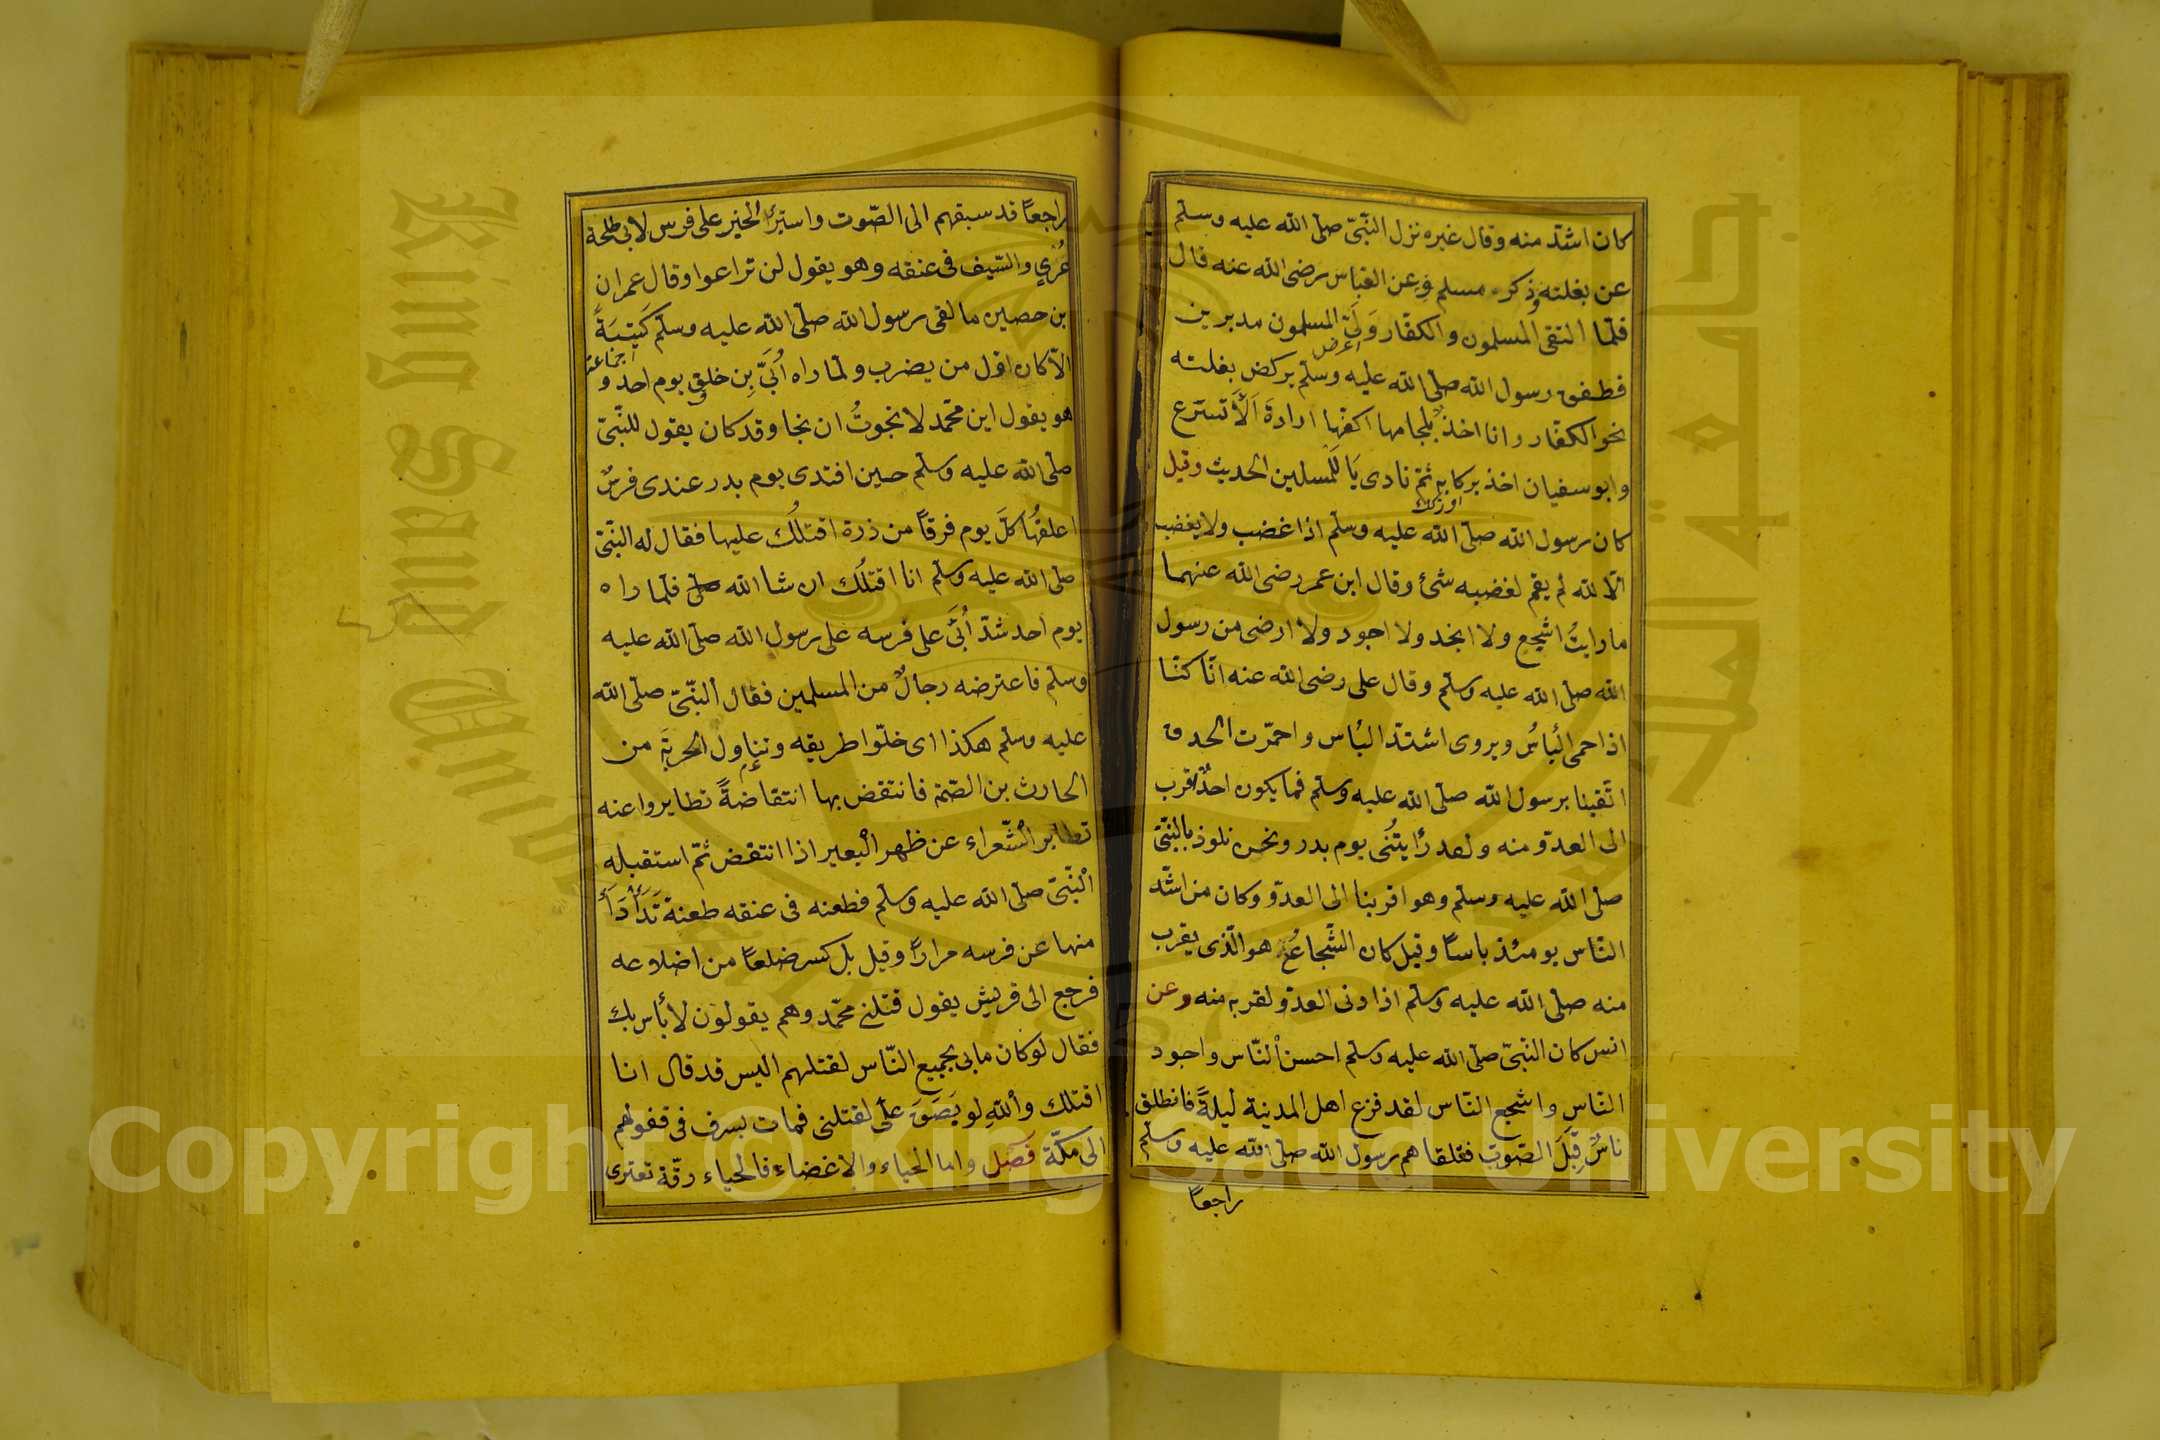 كان اشدّ منه وقال غيره نزل النّبىّ صلّى الله عليه وسلّم
عن بغلته وذكر مسلم عن العبّاس رضى الله عنه قال
فلمّا التقى المسلمون والكفّار وَلَّى المسلمون مدبرين
فطفق رسول الله صلّى الله عليه وسلّم يركض بغلته
نحو الكفّار وانا اخذٌ بلجامها اكفّها ارادةَ اَلَّا تسرع
وابوسفيان اخذ بركابه ثمّ نادى يَا لَلمسلمين الحديث وقيل
كان رسول الله صلّى الله عليه وسلّم اذا غضب ولا يغضب
الّا لله لم يقم لغضبه شئ وقال ابن عمر رضى الله عنهما
ما رايتُ اشجع ولا انجد ولا اجود ولا ارضى من رسول
الله صلّى الله عليه وسلّم وقال على رضى الله عنه انّا كنّا
اذا حمى البأسُ ويروى اشتدّ البأس واحمرّت الحدق
اتّقينا برسول الله صلّى الله عليه وسلّم فما يكون احدٌ اقرب
الى العدوّ منه ولقد رأيتُنى يوم بدر ونحن نلوذ بالنّبىّ
صلّى الله عليه وسلّم وهو اقربنا الى العدوّ وكان من اشدّ
النّاس يومئذ باسًا وقيل كان الشّجاعُ هو الّذى يقرب
منه صلّى الله عليه وسلّم اذا دنى العدوّ لقربه منه وعن
انس كان النّبىّ صلّى الله عليه وسلّم احسن النّاس واجود
النّاس واشجع النّاس لقد فزع اهل المدينة ليلةً فانطلق
ناسٌ قِبَلَ الصّوت فتلقاهم رسول الله صلّى الله عليه وسلّم
راجعًا
راجعًا قد سبقهم الى الصّوت واستبرأ الخبر على فرس لابى طلحة
عُرْىٍ والسّيف فى عنقه وهو يقول لن تراعوا وقال عمران
بن حصين ما لقى رسول الله صلّى الله عليه وسلّم كَتيبَةً
الّا كان اوّل من يضرب ولمّا راه اُبَىُّ بن خلف يوم احد و
هو يقول اين محمّد لا نجوتُ ان نجا وقد كان يقول للنّبىّ
صلّى الله عليه وسلّم حين افتدى يوم بدر عندى فرسٌ
اعلفُها كلَّ يوم فرقًا من ذرة اقتلُك عليها فقال له النّبىّ
صلّى الله عليه وسلّم انا اقتلُك ان شا الله فلمّا راه
يوم احد شدّ اُبَىٌّ على فرسه على رسول الله صلّى الله عليه
وسلّم فاعترضه رجالٌ من المسلمين فقال النّبىّ صلّى الله
عليه وسلّم هكذا اى خلّوا طريقه وتناول الحربةَ من
الحارث بن الصّمة فانتفض بها انتفاضةً تطايروا عنه
تطاير الشّعراء عن ظهر البعير اذا انتفض ثمّ استقبله
النّبىّ صلّى الله عليه وسلّم فطعنه فى عنقه طعنة تَدَأْدَأَ
منها عن فرسه مرارًا وقيل بل كسر ضلعًا من اضلاعه
فرجع الى قريش يقول قتلنى محمّد وهم يقولون لا بأس بك
فقال لو كان مابى بجميع النّاس لقتلهم اليس قد قال انا
اقتلك واللهِ لو بَصَقَ علىّ لقتلنى فمات بسرف فى قفولهم
الى مكّة فصل واما الحياء والاغضاء فالحياء رقّة تعترى
Copyright © King Saud University
King Saud University
جامعة الملك